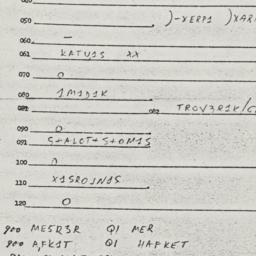 050 )-XERP1 )XAR
060 -
061 KATU1S XX
070 O
080 1M1D1K
081 082 TROV3R1K/C
090 O
091 S+ALOT+S+OM1S
100 O
110 X1SROJN1S
120 O
900 ME5D3R QI MER
900 A,FK1T QI HAFKET